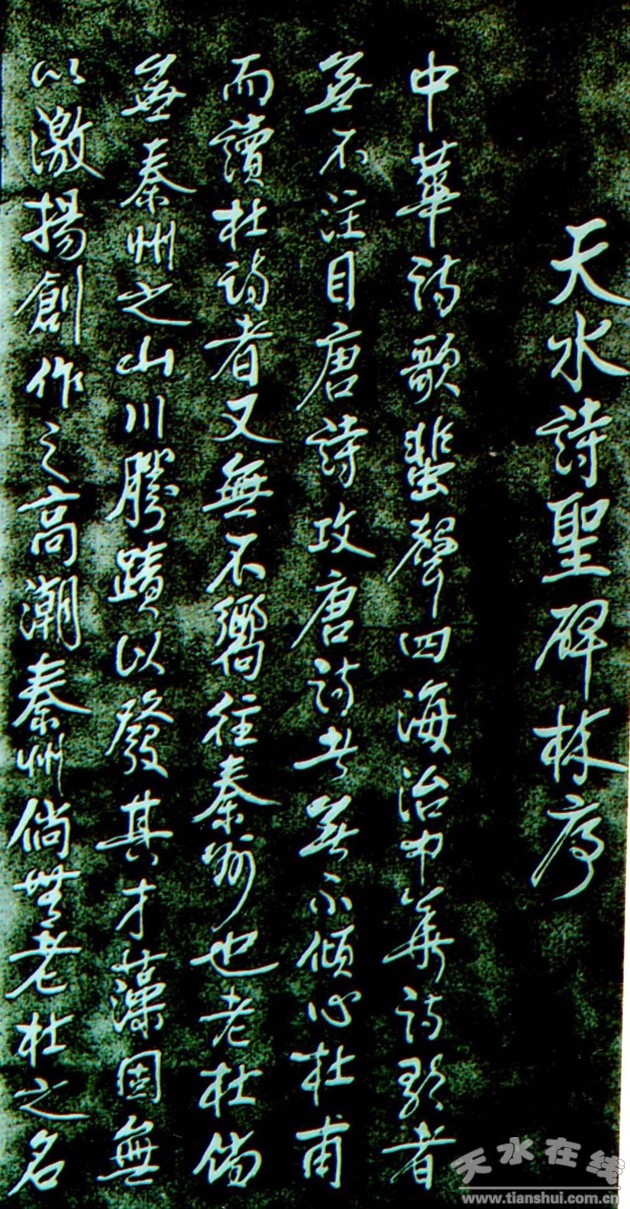 天水詩聖碑林序
中華詩歌蜚聲四海治中華詩歌者
無不注目唐詩攻唐詩者無不傾心杜甫
而讀杜詩者又無不嚮往秦州也老杜倘
無秦州之山川勝蹟以發其才藻固無
以激揚創作之高潮秦州倘無老杜之名
天水在线
www.tianshui.com.cn